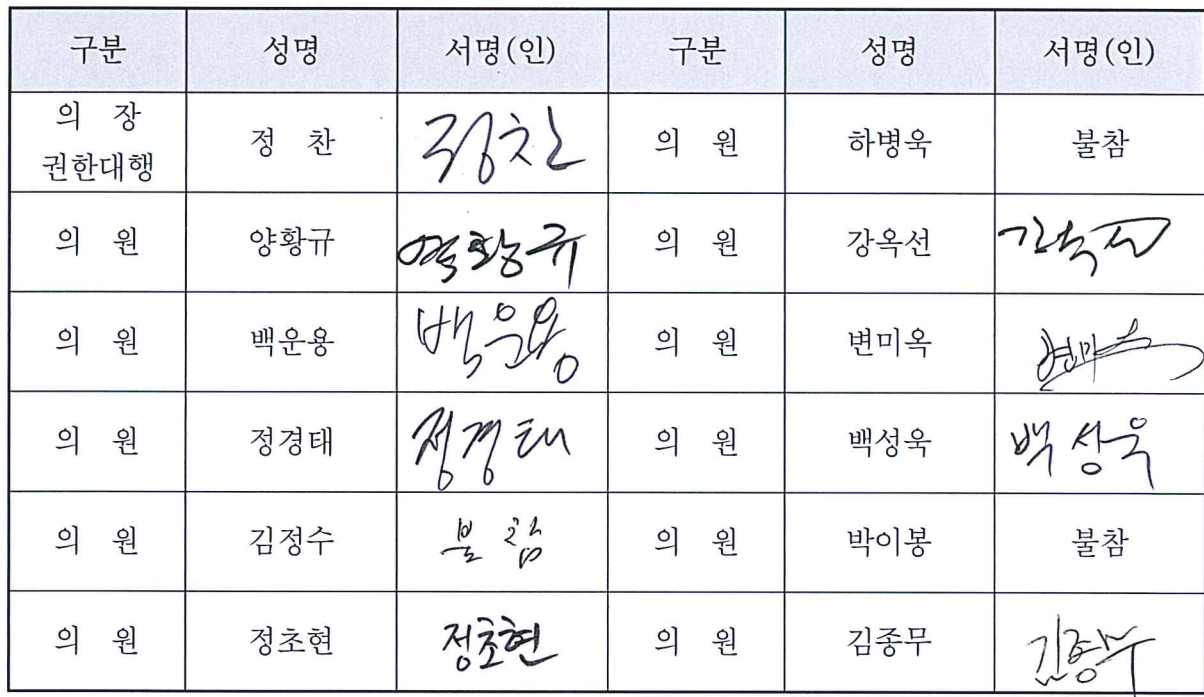 구분 성명 서명(인) 구분 성명 서명(인)
의 장
권한대행 정 찬 정찬 의 원 하병욱 불참
의 원 양황규 양황규 의 원 강옥선 강옥선
의 원 백운용 백운용 의 원 변미옥 변미옥
의 원 정경태 정경태 의 원 백성욱 백성욱
의 원 김정수 불참 의 원 박이봉 불참
의 원 정초현 정초현 의 원 김종무 김종무